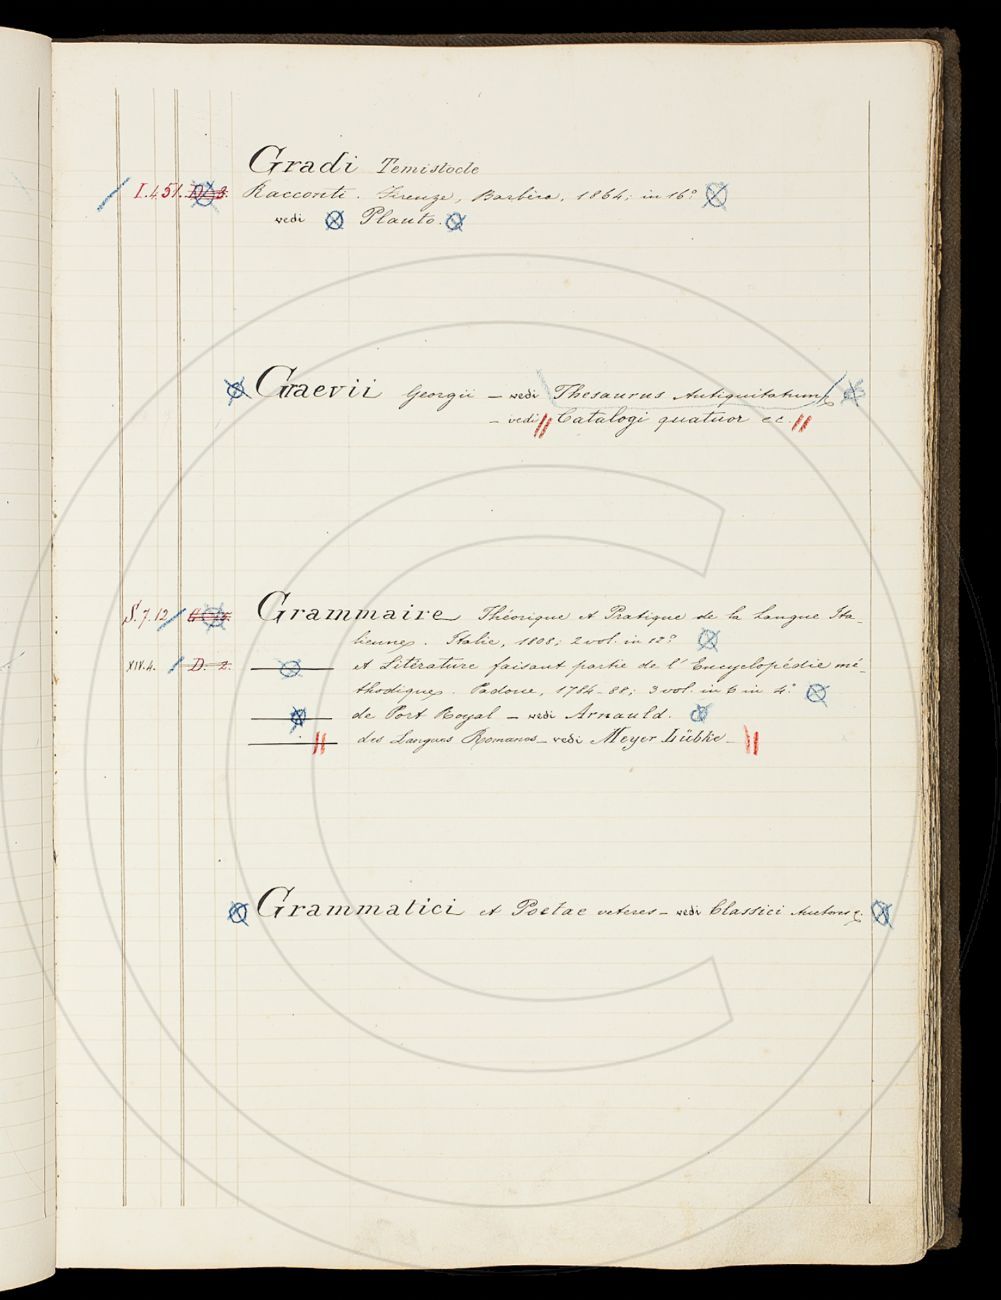 Gradi Temistocle
I.451. D. 3. Racconti. Firenze, Barbèra, 1864; in 16.°
vedi Plauto.
Graevii Georgii – vedi Thesaurus Antiquitatum
– vedi Catalogi quatuor ec.
S.7.12 Grammaire Théorique et Pratique de la Langue Ita-
lienne. Italie, 1808; 2 vol. in 12.°
XIV.4. D. 2. et Litérature faisant partie de l'Encyclopédie mé-
thodique. Padoue, 1784-88; 3 vol. in 6 in 4.°
de Port Royal – vedi Arnauld.
des Langues Romanes – vedi Meyer Lübke –
Grammatici et Poetae veteres – vedi Classici Auctores